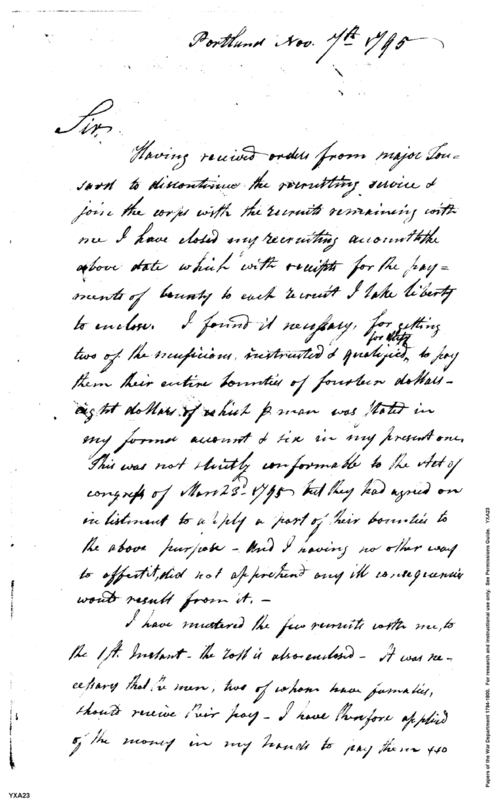 Portland Nov. 7th 1795
Sir,
Having received orders from major Tou=
sard to discontinue the recruiting service &
join the corps with the recruits remaining with
me I have closed my recruiting account to the
above date which with receipts for the pay=
ments of bounty to each recruit I take liberty
to enclose. I found it necessary, for getting
for duty
two of the musicians instructed & qualified, to pay
them their entire bounties of fourteen dollars -
eight dollars of which p man was stated in
my former account & six in my present one,
This was not strictly conformable to the Act of
congress of Mar. 23d 1795 but they had agreed on
inlistment to apply a part of their bounties to
the above purpose - And I having no other way
to effect it, did not apprehend any ill consequences
would result from it. -
I have mustered the few recruits with me, to
the 1st. Instant - the roll is also enclosed - It was ne-
cessary that men, two of whom have families,
should receive their pay - I have therefore applied
of the money in my hands to pay them
Papers of the War Department 1784-1800. For research and instructional use only. See Permissions Guide. YXA23
YXA23